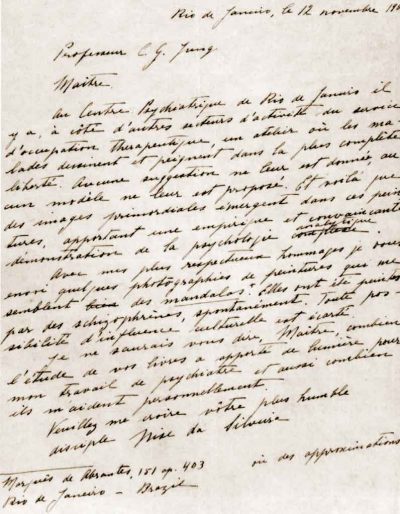 Rio de Janeiro, le 12 novembre 19
Professeur C. G. Jung
Maître
Au Centre Psychiatrique de Rio de Janeiro il
y a, à côte d'autres secteurs d'activité du service
d'occupation therapeutique, un atelier où les ma-
lades dessinent et peignent dans la plus complète
liberté. Aucune suggestion ne leur est donnée, au
cun modèle ne leur est proposé. Et voilà que
des images primordiales émergent dans ces pein
tures, apportant une empirique et convaincante
démonstration de la psychologie analytique
Avec mes plus respectueux hommages je vous
envoi quelques photographies de peintures qui me
semblent des mandalas. Elles ont été peintes
par des schizophrènes, spontanément. Toute pos-
sibilité d'influence culturelle est écarté.
Je ne saurais vous dire, Maître, combien
l'étude de vos livres a apporté de lumière pour
mon travail de psychiatre et aussi combien
ils m'aident personnellement.
Veuillez me croire vôtre plus humble
disciple Nise da Silveira
ou des approximations
Marquês de Abrantes, 151 ap. 403
Rio de Janeiro – Brazil